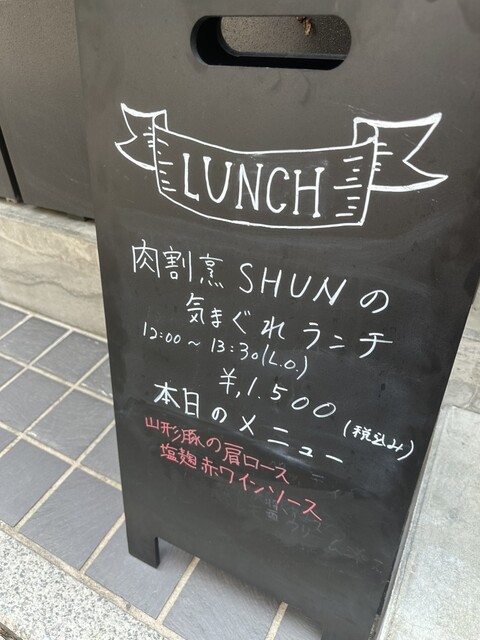 LUNCH
肉割烹 SHUNの
気まぐれランチ
12:00〜13:30(L.O.)
¥,1.500
(税込み)
本日のメニュー
山形豚の肩ロース
塩麹赤ワインソース